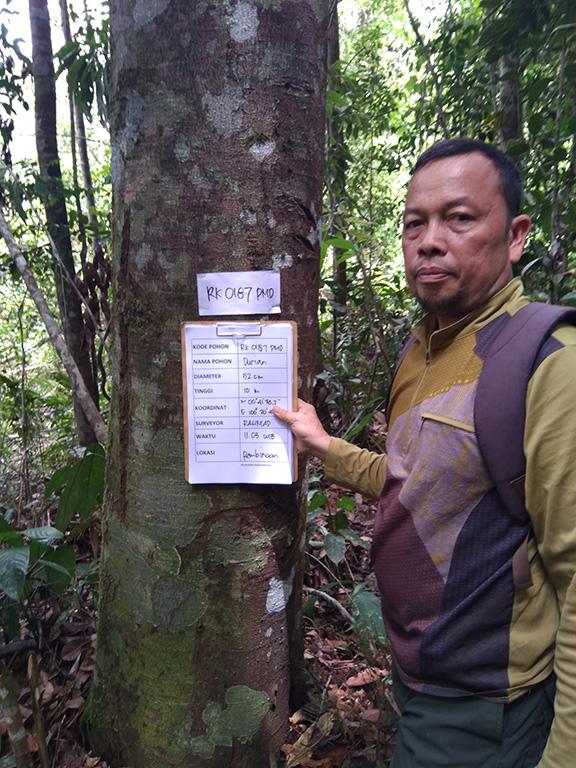 RK 0187 PMD
KODE POHON RK 0187 PMD
NAMA POHON Durian
DIAMETER 52 cm
TINGGI 10 m
KOORDINAT
SURVEYOR RAHMAD
WAKTU 11.03 WIB
LOKASI Pembinaan